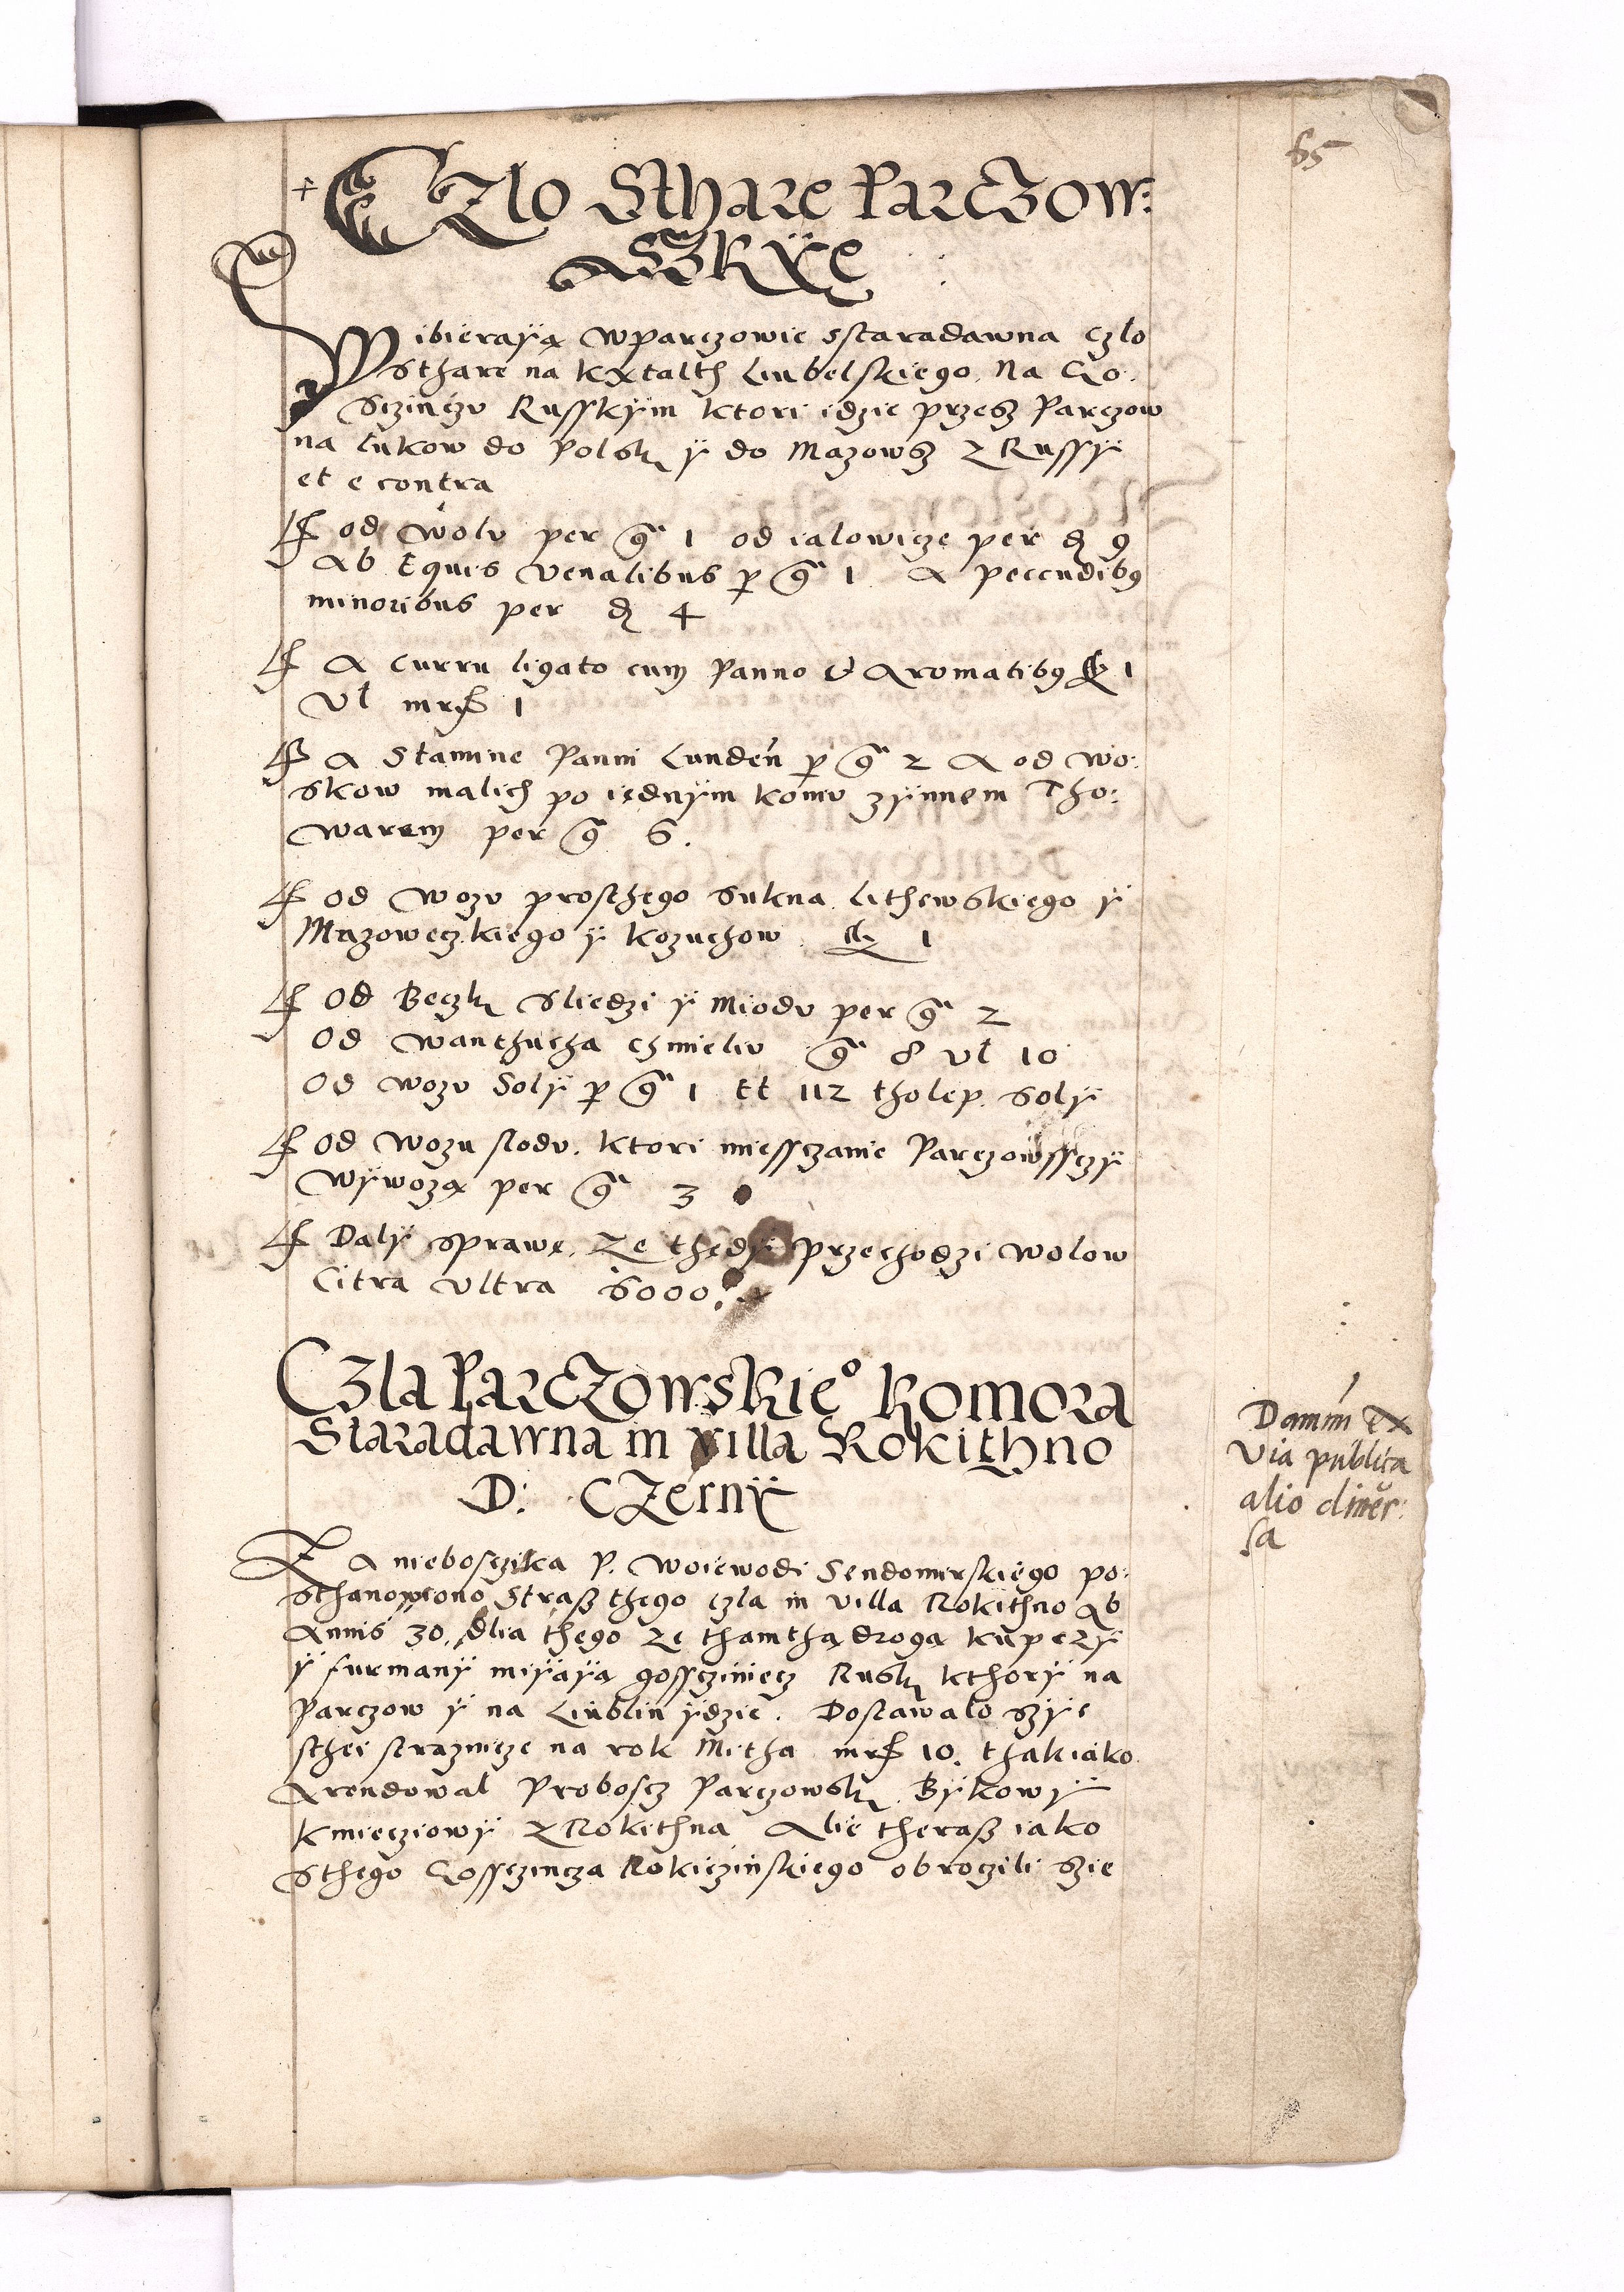 65
Czlo Sthare Parczow:
Skÿe
Wibieraÿą wparczowie sstaradawna czlo
Sthare na kxtalth Liubelskiego. Na Go:
sczinczv Russkÿm ktori idzie przesz Parczow
na Lukow do Polsk ÿ do Mazowsz z Russÿ
et e contra
od wolv per g 1 od ialowicze per d 9
Ab Equis venalibus p g 1 A peccudibq
minoribus per d 4
A curru ligato cum Panno et Aromatibq 1
vl mrc 1
A Stamine Panni Lunden p g 2 A od wo:
skow malich po iednÿm komv zÿnnem Tho:
warem per g 6.
od wozv prosthego sukna Lithewskiego ÿ
Mazoweczkiego ÿ kozuchow 1
od Beczk Sliedzi ÿ Miodv per g 2
od wanthucha chmieliv g 8 vl 10
od wozv Solÿ p g 1 et 112 tholep. solÿ
od wozu slodv. ktori miessczanie Parczowssczÿ
wÿwozą per g 3
Dalÿ sprawę. ze thędÿ przechodzi wolow
Citra vltra 6000.
Czla Parczowskieo komora
Staradawna in villa Rokithno
D: Czernÿ
Za nieboszczika P. Woiewodi Sendomirskiego po:
sthanowiono Strasz thego czla in villa Rokithno Ab
Annis 30. dlia thego ze thamthą drogą kupczÿ
ÿ furmanÿ miÿaÿą gossciniecz Rusk kthorÿ na
Parczow ÿ na Liublin ÿdzie. Dostawalo szÿe
sthei straznicze na rok Mitha mrc 10. thakiako
Arendowal Proboscz Parczowsk Bÿkowÿ
kmiecziowÿ z Rokithna Alie therasz iako
sthego Gossczincza Rokiczinskiego obroczili szie
Damm ex
via publica
alio diver:
sa